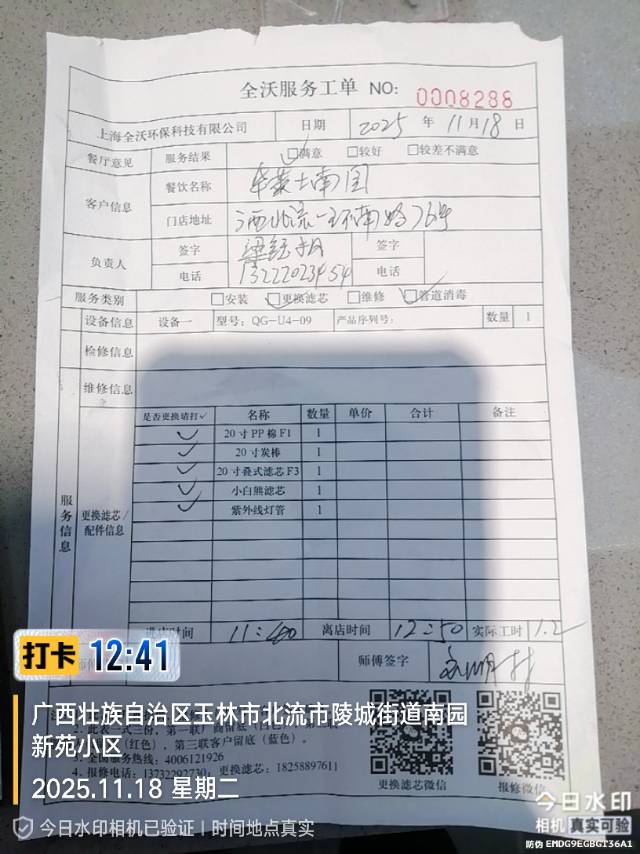 全沃服务工单 NO: 0008288
上海全沃环保科技有限公司 日期 2025 年 11 月 18 日
餐厅意见 服务结果 □满意 □较好 □较差不满意
客户信息 餐饮名称
门店地址
负责人 签字 签字
电话 13222023454 电话
服务类别 □安装 □更换滤芯 □维修 □管道消毒
设备信息 设备一 型号: QG-U4-09 产品序列号: 数量 1
检修信息
维修信息
服务信息 更换滤芯/配件信息
是否更换请打✓ 名称 数量 单价 合计 备注
✓ 20寸PP棉F1 1
✓ 20寸炭棒 1
✓ 20寸叠式滤芯F3 1
✓ 小白熊滤芯 1
✓ 紫外线灯管 1
进店时间 离店时间 12:50 实际工时 1.2
师傅签字
打卡 12:41
广西壮族自治区玉林市北流市陵城街道南园
新苑小区
2025.11.18 星期二
2. 此表一式三份，第一联
(红色)，第三联客户留底（蓝色）。
3. 全国服务热线: 4006121926
4. 报修电话: 13732292730；更换滤芯: 18258897611
更换滤芯微信 报修微信
今日水印相机已验证 | 时间地点真实
今日水印
相机 真实可验
防伪 EMDG9EGBGT36A1